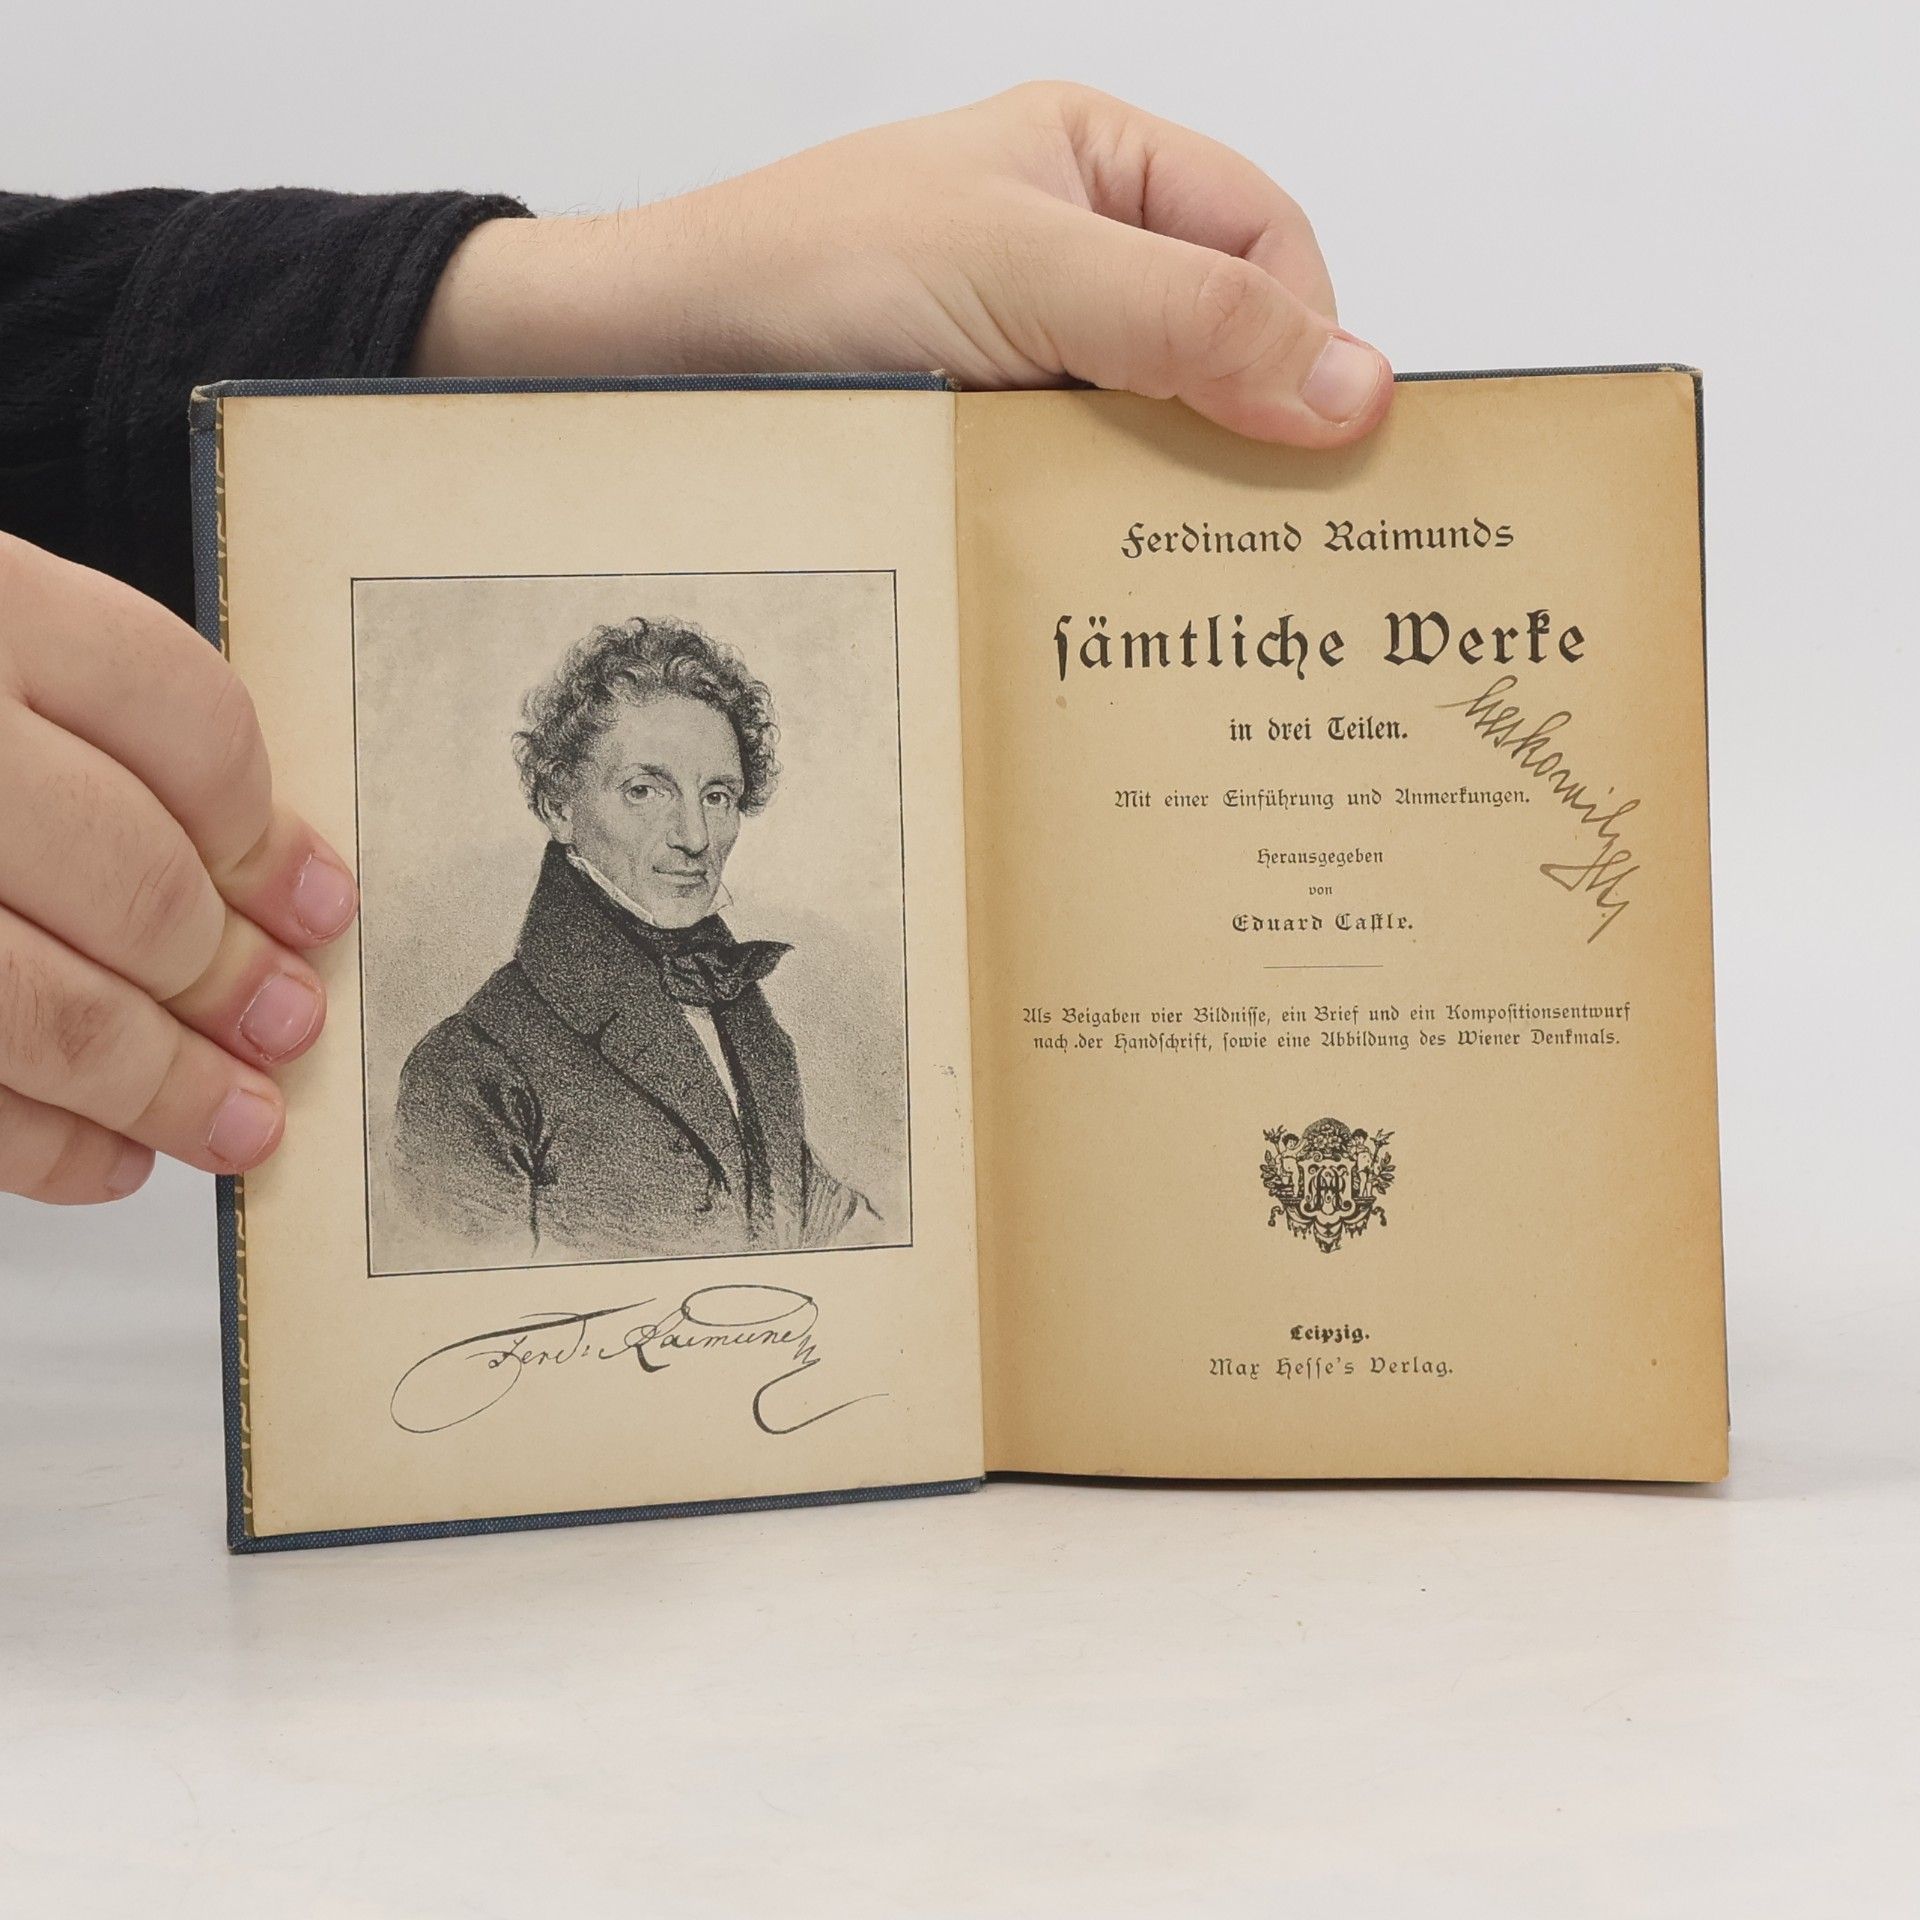 Ferd: Raimund
Ferdinand Raimunds
sämtliche Werke
in drei Teilen.
Mit einer Einführung und Anmerkungen.
Herausgegeben
von
Eduard Castle.
Als Beigaben vier Bildnisse, ein Brief und ein Kompositionsentwurf
nach der Handschrift, sowie eine Abbildung des Wiener Denkmals.
Leipzig.
Max Hesse's Verlag.